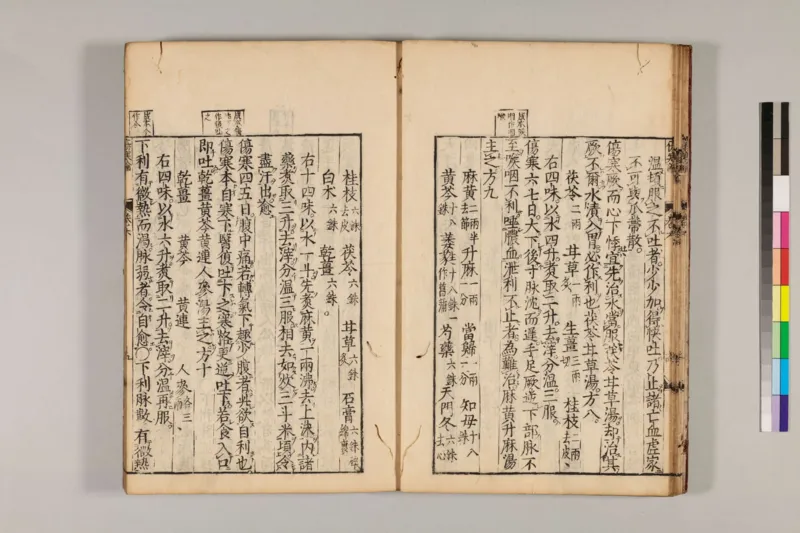 温頓服之不吐者少少加得快吐乃止諸亡血虛家
不可與瓜蒂散
傷寒厥而心下悸宜先治水當服茯苓甘草湯却治其
厥不爾水漬入胃必作利也茯苓甘草湯方八
茯苓二兩 甘草一兩炙 生薑三兩切 桂枝二兩去皮
右四味以水四升煮取二升去滓分溫三服
傷寒六七日大下後寸脉沈而遲手足厥逆下部脉不
至喉咽不利唾膿血泄利不止者為難治麻黄升麻湯
主之方九
麻黄二兩半去節 升麻一兩一分 當歸一兩一分 知母十八銖
黄芩十八銖 萎蕤十八銖一作菖蒲 芍藥六銖 天門冬六銖去心
桂枝六銖去皮 茯苓六銖 甘草六銖炙 石膏六銖碎綿裹
白术六銖 乾薑六銖
右十四味以水一斗先煮麻黄一兩沸去上沫内諸
藥煮取三升去滓分溫三服相去如炊三斗米頃令
盡汗出愈
傷寒四五日腹中痛若轉氣下趣少腹者此欲自利也
傷寒本自寒下醫復吐下之寒格更逆吐下若食入口
即吐乾薑黄芩黄連人參湯主之方十
乾薑 黄芩 黄連 人參各三兩
右四味以水六升煮取二升去滓分溫再服
下利有微熱而渴脉弱者令自愈○下利脉數有微熱